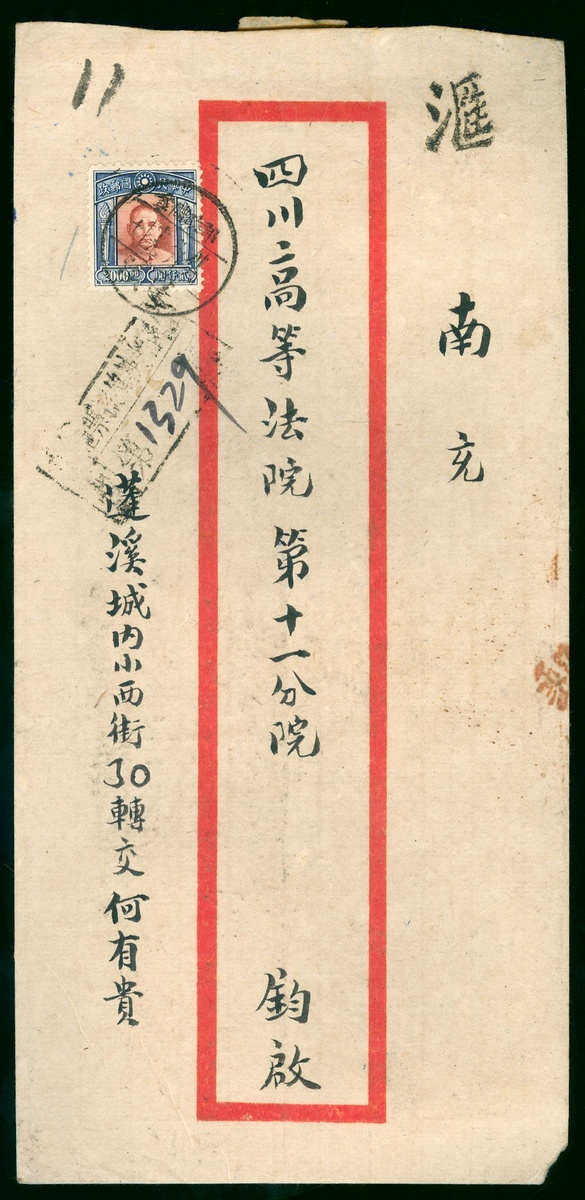 滙
南充
四川高等法院第十一分院 鈞啟
蓬溪城內小西街30轉交何有貴
政郵國民華中
2000 00
貳仟圓
1329
11